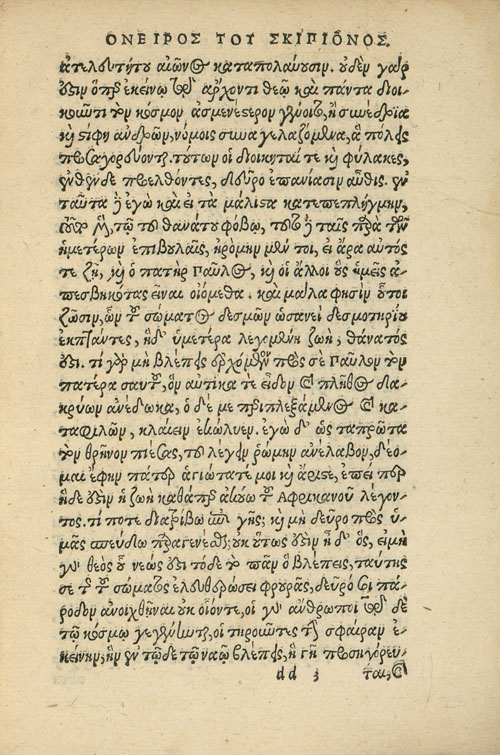 ΟΝΕΙΡΟΣ ΤΟΥ ΣΚΙΠΙΩΝΟΣ.
ἀτελευτήτου αἰῶνος καταπολαύουσιν. οὐδὲν γάρ
ἐστιν ὅπερ ἐκείνῳ τῷ ἄρχοντι θεῷ καὶ πάντα διοι-
κοῦντι τὸν κόσμον ἀσμενέστερον γένοιτο, ἢ συνέδρια
καὶ στίφη ἀνδρῶν, νόμοις συναγελαζόμενα, ἃ πόλεις
προσαγορεύονται. τούτων οἱ διοικηταί τε καὶ φύλακες,
ἐνθένδε προελθόντες, δεῦρο ἐπανίασιν αὖθις. ἐν
ταῦτα δ' ἐγὼ καὶ εἰ τὰ μάλιστα κατεπεπλήγμην,
τῷ τοῦ θανάτου φόβῳ, ταῖς παρὰ τῶν
ἡμετέρων ἐπιβουλαῖς, ἠρόμην μέν τοι, εἰ ἄρα αὐτός
τε ζῇ, καὶ ὁ πατὴρ Παῦλος, καὶ οἱ ἄλλοι οὓς ἡμεῖς ἀ-
πεσβηκότας εἶναι οἰόμεθα. καὶ μάλα φησὶν οὗτοι
ζῶσιν, τοῦ σώματος δεσμῶν ὡσανεὶ δεσμοτηρίου
ἐκπτάντες, ἡ δ' ὑμετέρα λεγομένη ζωὴ, θάνατός
ἐστι. τί γὰρ μὴ βλέπεις ἐρχόμενον πρὸς σὲ Παῦλον τὸν
πατέρα σαυτοῦ, ὃν αὐτίκα τε εἶδον καὶ πλῆθος δα-
κρύων ἀνέδωκα, ὁ δέ με περιπλεξάμενος καὶ κα-
ταφιλῶν, κλαίειν ἐκώλυεν. ἐγὼ δ' ὡς ταπρῶτα
τὸν θρῆνον πιέσας, τοῦ λέγειν ῥώμην ἀνέλαβον, δέο-
μαι ἔφην πάτερ ἁγιώτατέ μοι καὶ ἄριστε, ἐπεί περ
ἥδε ἐστὶν ἡ ζωὴ καθάπερ ἀκούω τοῦ Αφρικανοῦ λέγον-
τος. τί ποτε διατρίβω ἐπὶ γῆς; καὶ μὴ δεῦρο πρὸς ὑ-
μᾶς σπεύδω παραγενέσθαι; οὐκ οὕτως ἐστὶν ἦ δ' ὅς, εἰ μὴ
γὰρ θεὸς οὗ νεώς ἐστι τόδε τὸ πᾶν ὃ βλέπεις, ταύτης
σε τῆς τοῦ σώματος ἐλευθερώσει φρουρᾶς, δεῦρό σοι πά-
ροδον ἀνοιχθῆναι οὐκ οἷόν τε, οἱ γὰρ ἄνθρωποι τῷδε
τῷ κόσμῳ γεγένηνται, οἱ τηροῦντες τὴν σφαῖραν ἐ-
κείνην, ἣν ἐν τῷδε τῷ ναῷ βλέπεις, ἣ γῆ προσηγόρευ-
dd 3 ται, καὶ